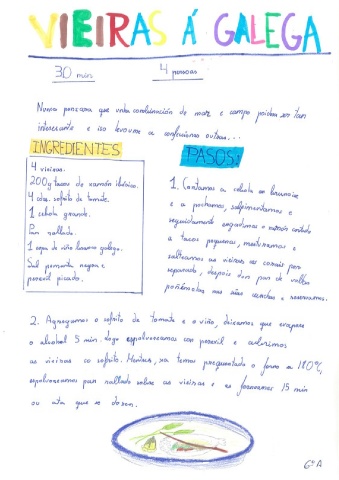 VIEIRAS Á GALEGA
30 min
4 persoas
Nunca pensara que unha combinación de mar e campo poidera ser tan
interesante e iso levoume a confeccionar outras...
INGREDIENTES
PASOS:
4 vieiras.
200g tacos de xamón ibérico.
4 cdas. sofrito de tomate.
1 cebola grande.
Pan rallado.
1 copa de viño branco galego.
Sal pementa negra e
perexil picado.
1. Cortamos a cebola en brunoise
e a pochamos, salpimentamos e
seguidamente engadimos o xamón cortado
a tacos pequenos, mesturamos e
salteamos as vieiras no
separado, despois
as súas cunchas e reservamos.
2. Agregamos o sofrito de tomate e o viño, deixamos que evapore
o alcohol 5 min. Logo espolvoreamos con perexil e cubrimos
as vieiras co sofrito. Mentres, xa temos prequentado o forno a 180ºC,
espolvoreamos pan rallado sobre as vieiras e as forneamos 15 min
ou ata que se doren.
6º A